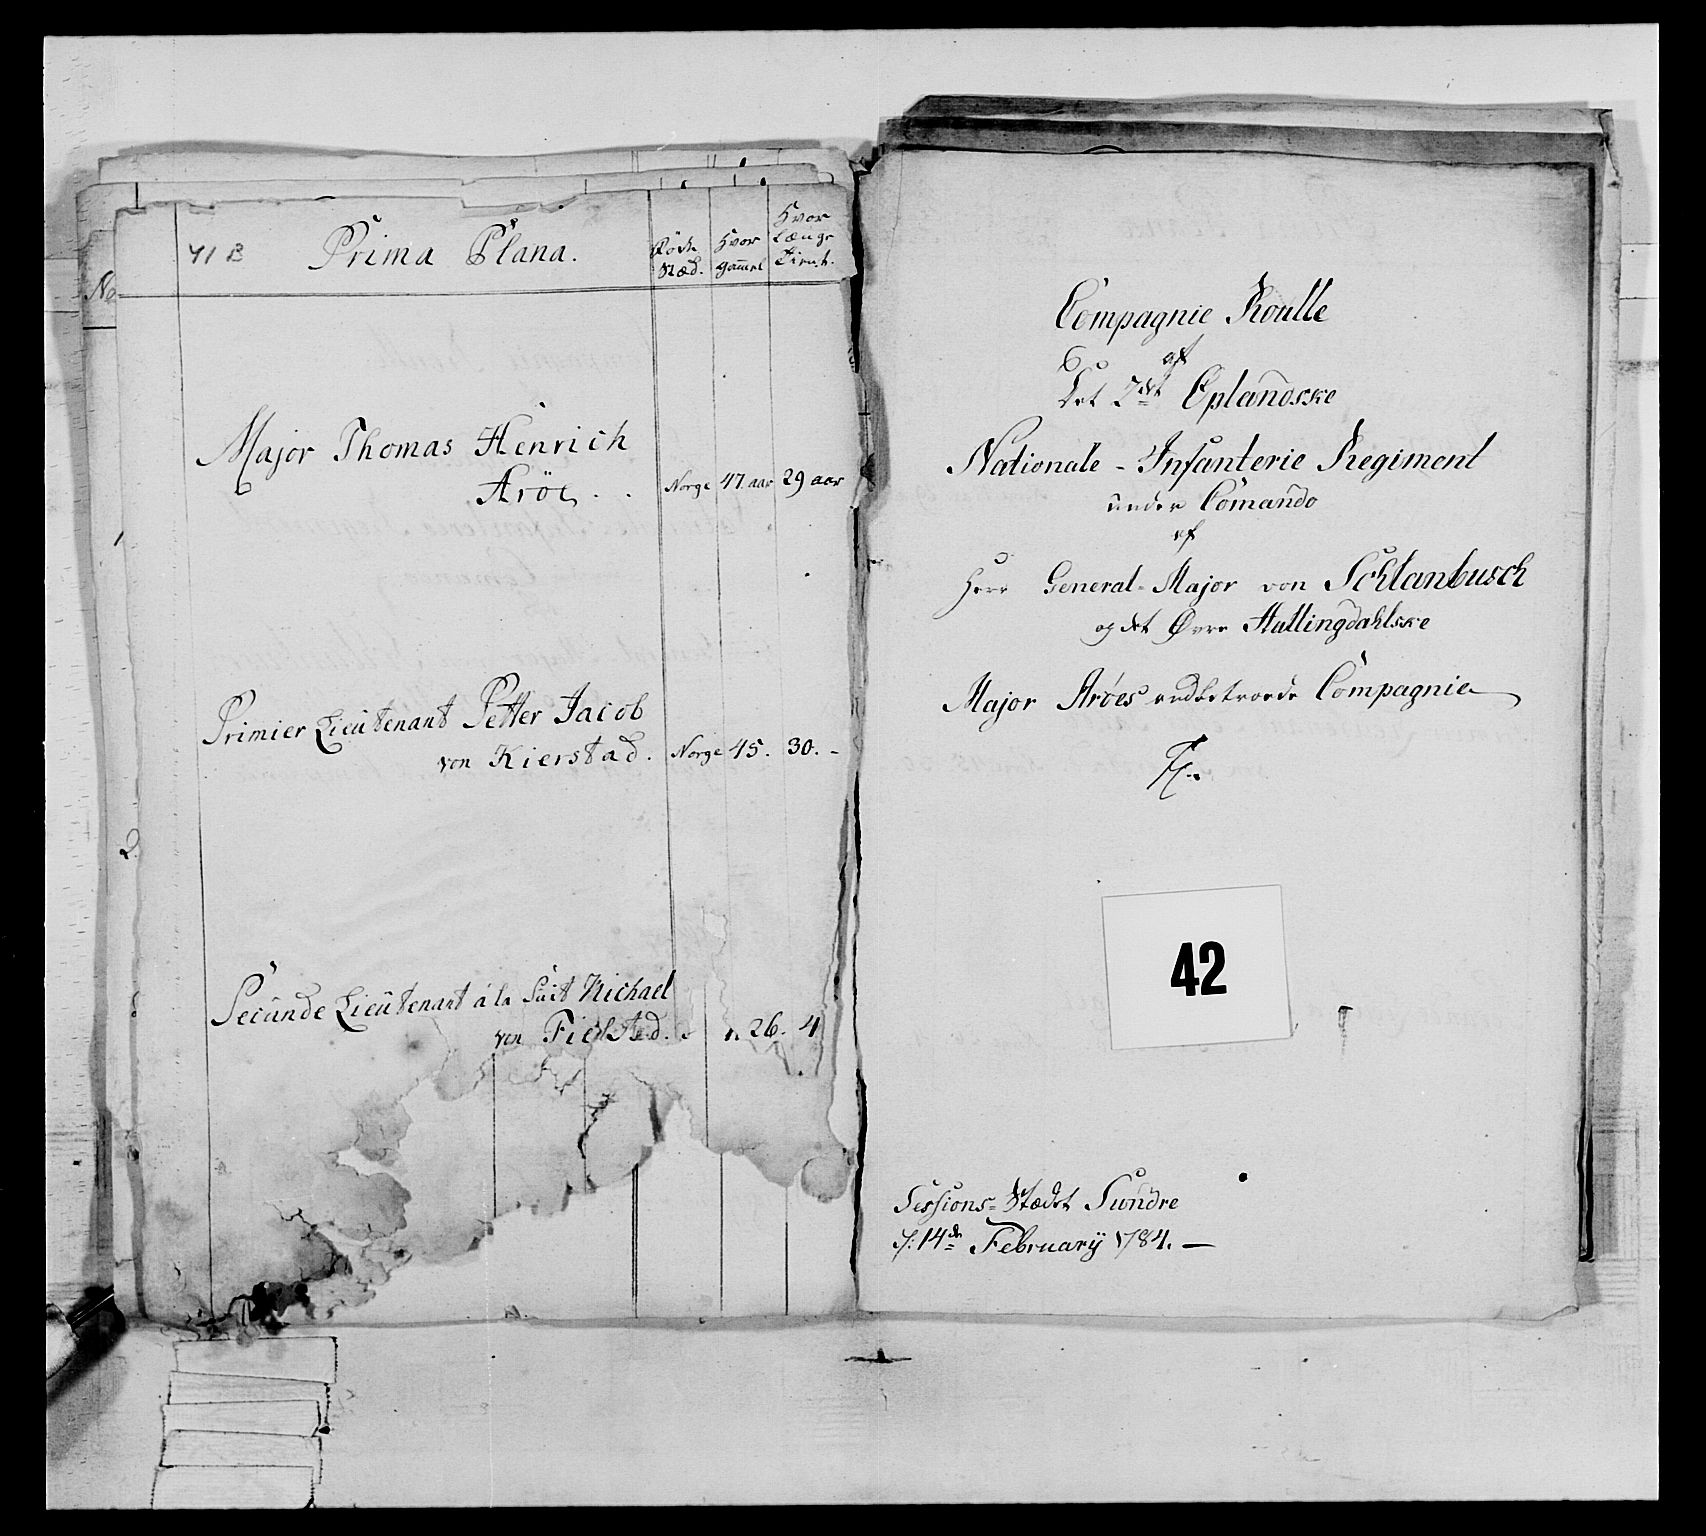 No
41 B
Prima Plana.
Føde
Stæd.
Hvor
gammel
Hvor
Længe
Tient.
Major Thomas Henrich
Aröe
Norge 47 aar 29 aar
Primier Lieutenant Petter Jacob
von Kierstad. Norge 45. 30. -
2.
Secunde Lieutenant á la Suit Michael
von Fielsted. 26. 4
Compagnie Roulle
af
Det 2det Oplandske
Nationale - Infanterie Regiment
under Comando
af
Herr General-Major von Schlanbusch
og det Øvre Hallingdahlske
Major Aröes andbetroede Compagnie
42
Sessions-Stædet Sundre
d: 14de February 1784. —